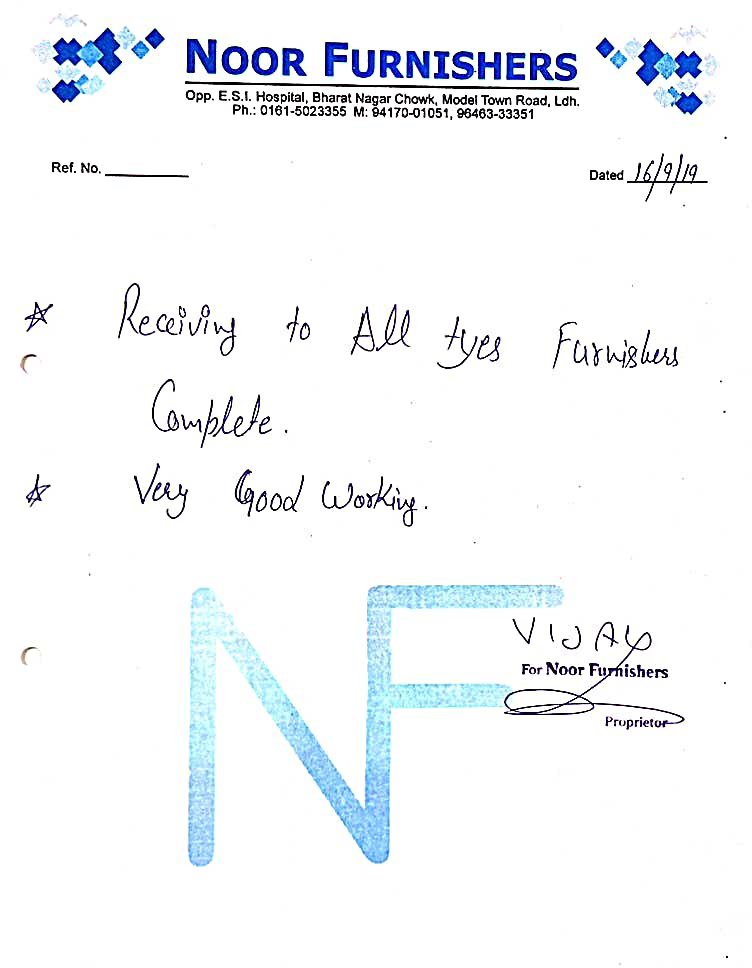 NOOR FURNISHERS
Opp. E.S.I. Hospital, Bharat Nagar Chowk, Model Town Road, Ldh.
Ph.: 0161-5023355 M: 94170-01051, 96463-33351
Ref. No. Dated 16/9/19
Receiving to All tyes Furnishers
Complete.
Very Good Working.
NF
VIJAY
For Noor Furnishers
Proprietor